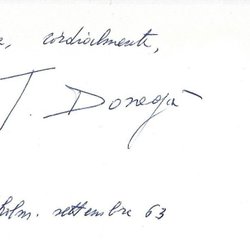 cordialmente,
T. Donegà
settembre 63